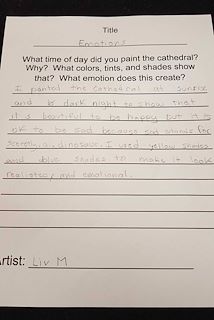 Title
Emotions
What time of day did you paint the cathedral?
Why? What colors, tints, and shades show
that? What emotion does this create?
I painted the Cathedral at sunrise
and a dark night to show that
it is beautiful to be happy but it is
ok to be sad because sad stands for
a dinosaur. I used yellow shades
and blue shades to make it look
realistec and emotional.
Artist: Liv M